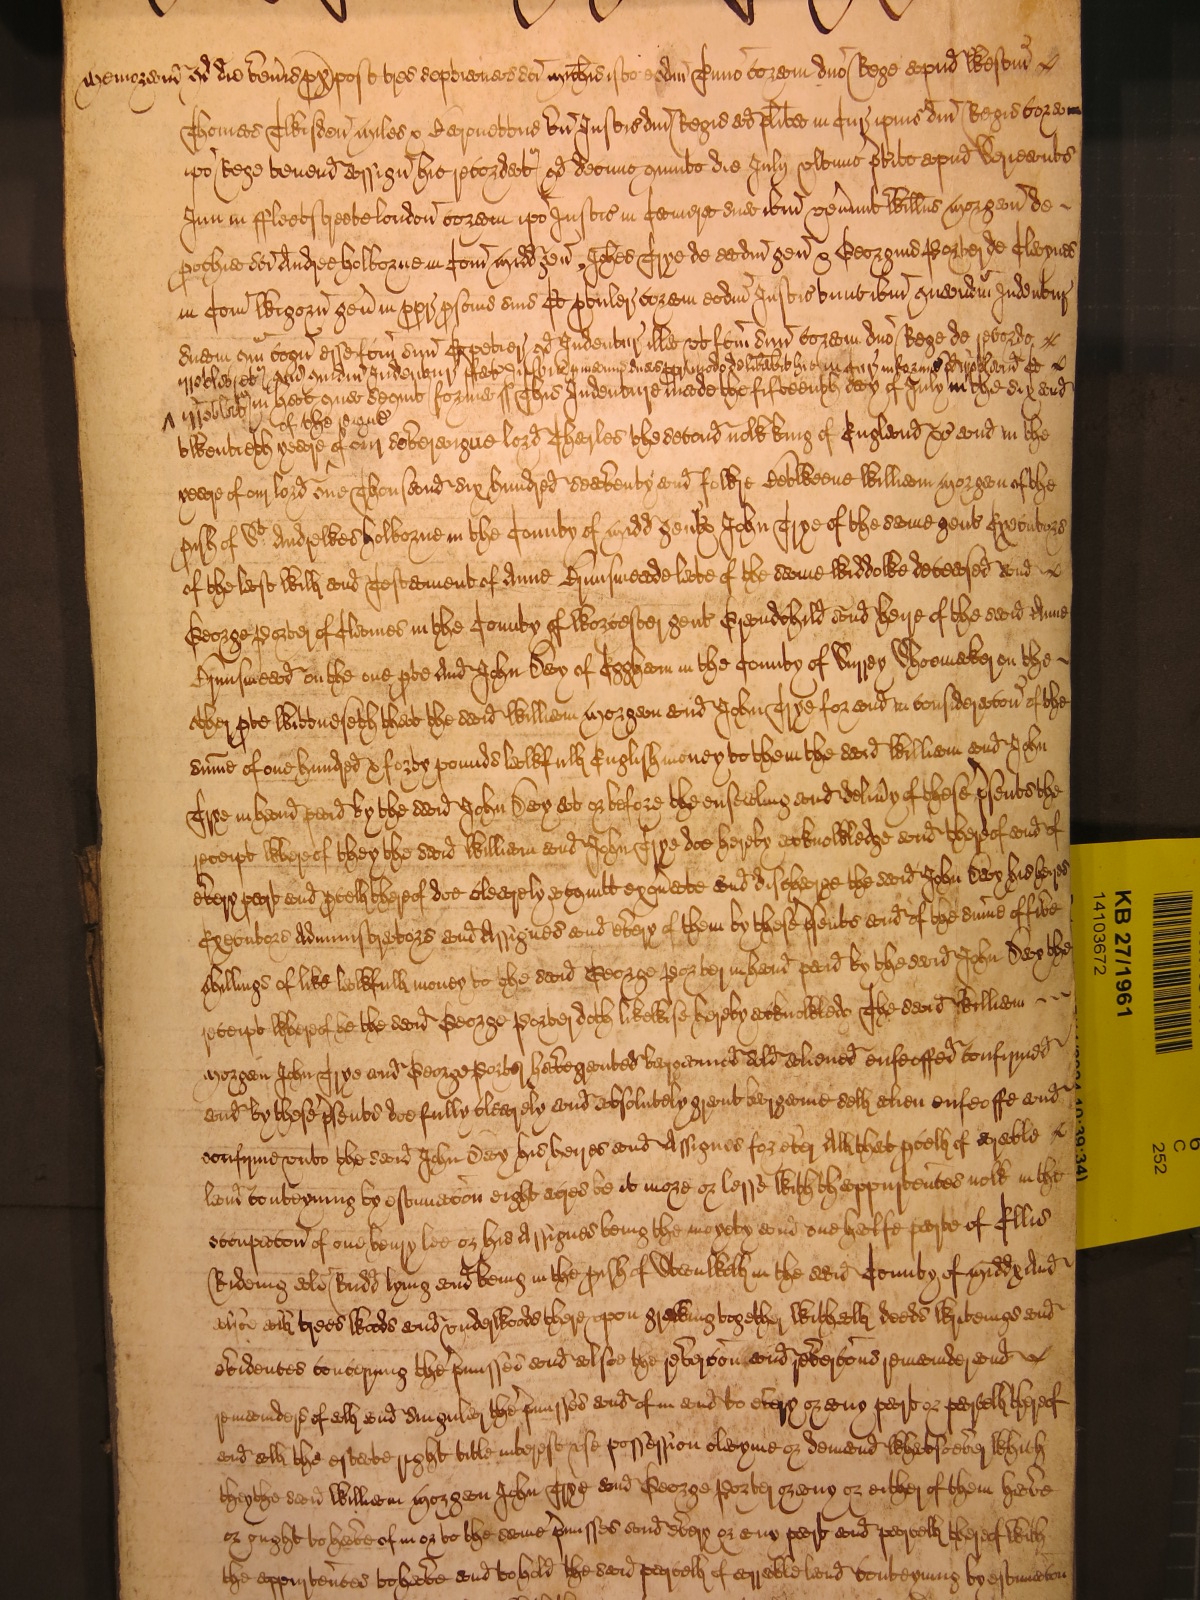 Memorand qd die veneris px post tres septimanas sci Michis isto eodm Anno coram dno Rege apud Westm
Thomas Twisden miles & Baronettus un Justic dni Regis ad plita in Cur ipius dni Regis coram
ipo Rege tenend assign hic recordat qd decimo quinto die July ultimo pterito apud Serjeants
Inn in ffleetstreete london coram ipo Justic in Camera sua ibm venerunt Willus Morgan de
pochia sci Andree holborne in Com Midd gen Johes Trye de eadm gen & Georgius Porter de Claynes
in Com Wigorn gen in ppr psonis suis Et ptuler coram eodm Justic tunc ibm quandm Indentur
suam qm cogn esse fcm suum Et petier qd Indentur illa ut fcm suum coram dno Rege de recordo
irrotlaret
irrotlat in hec que sequit forma ss This Indenture made the fifteenth day of July in the six and
of the raigne
twentieth yeare of our Soveraigne lord Charles the second now king of England &c and in the
yeare of our lord One Thousand six hundred seaventy and fowre Betweene William Morgan of the
pish of St Andrewes holborne in the County of Midd gent John Trye of the same gent Executors
of the last Will and Testament of Anne Brinsmeade late of the same widdowe deceased and
George Porter of Claines in the County of Worcester gent Grandchild and heire of the said Anne
Brinsmead on the one pte And John Day of Eggham in the County of Surrey Shoomaker on the
other pte Wittnesseth that the said William Morgan and John Trye for and in consideracon of the
sume of one hundred & forty pounds lawfull English money to them the said William and John
Trye in hand paid by the said John Day at or before the ensealing and delivy of these psents the
receipt whereof they the said William and John Trye doe hereby acknowledge and thereof and of
every part and pcell thereof doe clearely acquitt exonerate and discharge the said John Day his heires
Executors Administrators and Assignes and every of them by these psents and of the sume of five
shillings of like lawfull money to the said George Porter in hand paid by the said John Day the
receipt whereof he the said George Porter doth likewise hereby acknowledg The said William
Morgan John Trye and George Porter have granted bargained sold aliened enfeoffed confirmed
and by these psents doe fully clearely and absolutely grant bargaine sell alien enfeoffe and
confirme unto the said John Day his heires and Assignes for ever All that pcell of arable
land conteyning by estimacon eight acres be it more or lesse with thappurtences now in the
occupacon of one henry lee or his Assignes being the moyety and one halfe parte of Ellis
lying and being in the pish of Stanwell in the said County of Midd And
all trees woods and underwoods thereupon growing together with all deeds writeings and
evidences concerning the pmisses and alsoe the revercon and revercons remainder and
remainders of all and singuler the pmisses and of in and to every or any part or parcell thereof
and all the estate right title interest use possession clayme or demand whatsoever which
they the said William Morgan John Trye and George Porter or any or either of them have
or ought to have of in or to the same pmisses and every or any part and parcell thereof with
the appurtences to have and to hold the said parcell of arrable land conteyning by estimacon
KB 27/1961
14103672
C
252
10:39:34)